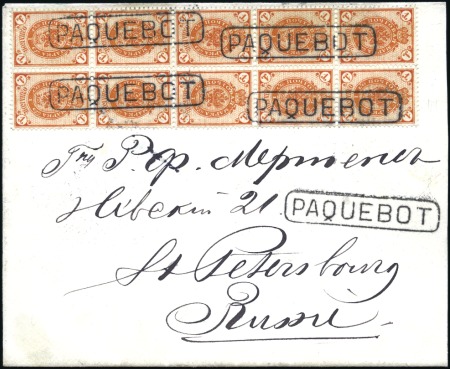 PAQUEBOT PAQUEBOT
PAQUEBOT PAQUEBOT
Гну Р. Ф. Мертенсъ
Невскій 21.
PAQUEBOT
St Petersbourg
Russie